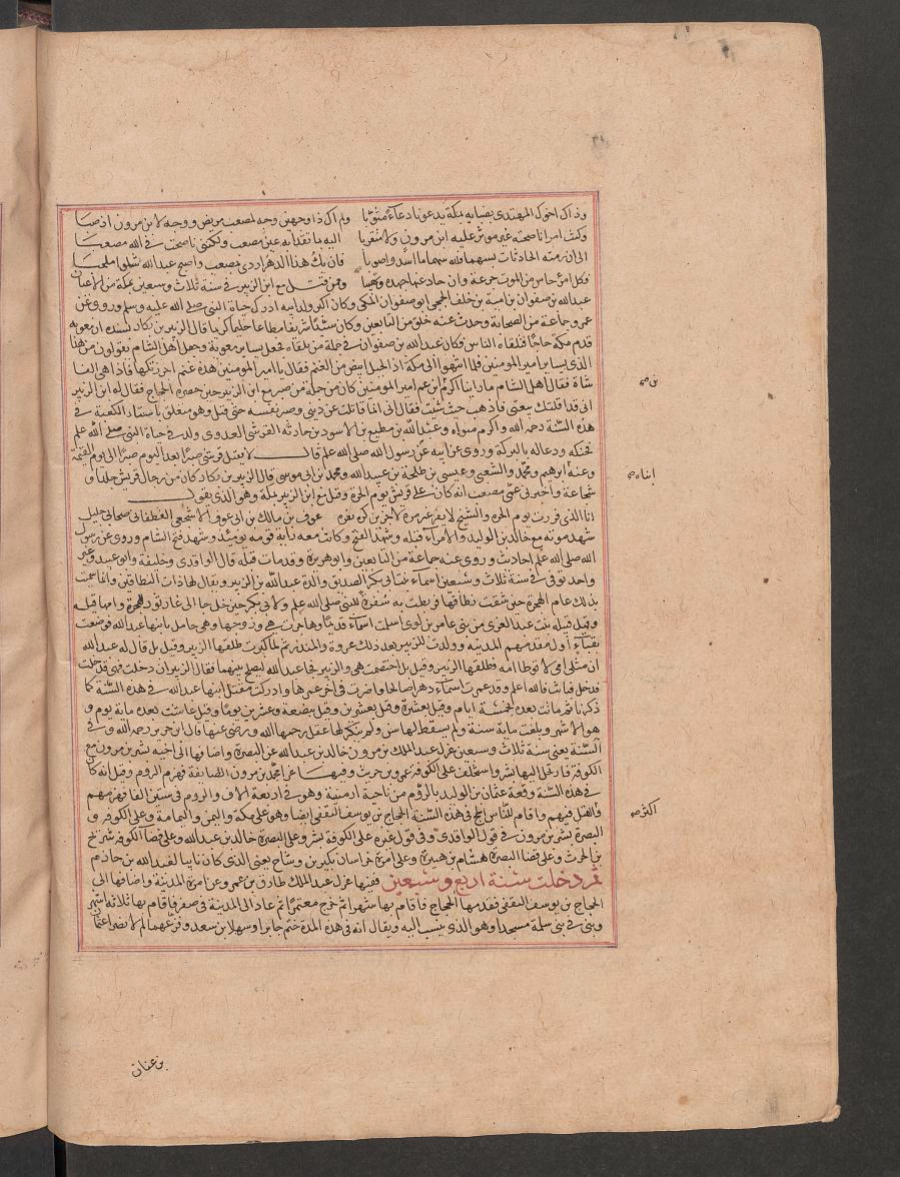 وذاك اخوك المهتدى بضيائه بمكة يدعونا دعاء مثوبا ولم اك ذا وجهين وجه لمصعب مريض ووجه لابن مرون اذ صبا
وكنت امرا ناصحته غير موثر عليه ابن مرون ولا متقربا اليه بما تقذا به عين مصعب ولكننى ناصحت فى الله مصعبا
الى ان رمته الحادثات بسهمها فلله سهما ما اسد واصوبا فان يك هذا الدهر اردى بمصعب واصبح عبد الله شلوا ملحبا
فكل امرء حاس من الموت جرعة وان حاد عنها جهده وتهيبا وممن قتل مع ابن الزبير فى سنة ثلاث وسبعين بمكة من الاعيان
عبد الله بن صفوان بن امية بن خلف الجمحى ابو صفوان المكى وكان اكبر ولد ابيه ادرك حياة النبى صلى الله عليه وسلم وروى عن
عمر وجماعة من الصحابة وحدث عنه خلق من التابعين وكان سيدا شريفا مطاعا حليما كريما قال الزبير بن بكار بسنده ان معوية
قدم مكة حاجا فتلقاه الناس فكان عبد الله بن صفوان فى جملة من تلقاه فجعل يساير معوية وجعل اهل الشام يقولون من هذا
الذى يساير امير المومنين فلما انتهوا الى مكة اذا الجبل ابيض من الغنم فقال يا امير المومنين هذه غنم اجزرتكها فاذا هى الفا
شاة فقال اهل الشام ما راينا اكرم من ابن عم امير المومنين كان من جملة من صبر مع ابن الزبير حين حصره الحجاج فقال له ابن الزبير
انى قد اقلتك بيعتى فاذهب حيث شئت فقال انى انما قاتلت عن دينى وصبر نفسه حتى قتل وهو متعلق باستار الكعبة فى
هذه السنة رحمه الله واكرم مثواه وعبد الله بن مطيع بن الاسود بن حارثة القرشى العدوى ولد فى حياة النبى صلى الله علم
فحنكه ودعا له بالبركة وروى عن ابيه عن رسول الله صلى الله علم قال لا يقتل قرشى صبرا بعد اليوم صبرا الى يوم القيمة
وعنه ابرهيم ومحمد والشعبى وعيسى بن طلحة بن عبيد الله ومحمد بن ابى موسى قال الزبير بن بكار كان من رجال قريش جلدا و
شجاعة واخبرنى عمى مصعب انه كان على قريش يوم الحرة وقتل مع ابن الزبير بمكة وهو الذى يقول
انا الذى فررت يوم الحره والشيخ لا يفر غير مرة لاجزين كرة بفره عوف بن مالك بن ابى عوف الاشجعى الغطفانى صحابى جليل
شهد موته مع خالد بن الوليد والامراء قبله وشهد الفتح وكانت معه راية قومه يومئذ وشهد فتح الشام وروى عن رسول
الله صلى الله علم احاديث وروى عنه جماعة من التابعين وابو هريرة وقد مات قبله قال الواقدى وخليفة وابو عبيد وغير
واحد توفى فى سنة ثلاث وسبعين اسماء بنت ابى بكر الصديق والدة عبد الله بن الزبير ويقال لها ذات النطاقين وانما سميت
بذلك عام الهجرة حين شقت نطاقها فربطت به سفرة للنبى صلى الله علم ولابى بكر حين خرجا الى غار ثور للهجرة وامها قيله
وقيل قتيله بنت عبد العزى من بنى عامر بن لوى اسلمت اسماء قديما وهاجرت هى وزوجها وهى حامل بابنها عبد الله فوضعت
بقباء اول مقدمهم المدينه وولدت للزبير بعد ذلك عروة والمنذر ثم لما كبرت طلقها الزبير وقيل بل قال له عبد الله
ان مثلى امى لا توطا امه فطلقها الزبير وقيل بل اختصمت هى والزبير فجا عبد الله ليصلح بينهما فقال الزبير ان دخلت فهى قد طلقت
فدخل فبانت فالله اعلم وقد عمرت اسماء دهرا صالحا واضرت فى اخر عمرها وادركت مقتل ابنها عبد الله فى هذه السنة كما
ذكرنا ثم ماتت بعده بخمسة ايام وقيل بعشرة وقيل بعشرين وقيل بضعة وعشرين يوما وقيل عاشت بعده مائة يوم و
هو الاشهر وبلغت ماية سنة ولم يسقط لها سن ولم ينكر لها عقل رحمها الله ورضى عنها قال ابن جرير رحمه الله وفى
السنة يعنى سنة ثلاث وسبعين عزل عبد الملك بن مرون خالد بن عبد الله عن البصرة واضافها الى اخيه بشر بن مرون مع
الكوفة فارتحل اليها بشر واستخلف على الكوفة عمرو بن حريث وفيها غزا محمد بن مرون الصايفة فهزم الروم وقيل انه كان
فى هذه السنة وقعة عثمان بن الوليد بالروم من ناحية ارمنية وهو فى اربعة الاف والروم فى ستين الفا فهزمهم
والقتل فيهم واقام للناس الحج فى هذه السنة الحجاج بن يوسف الثقفى ايضا وهو على مكة واليمن واليمامة وعلى الكوفه و
البصرة بشر بن مرون فى قول الواقدى وفى قول غيره على الكوفة بشر وعلى البصرة خالد بن عبد الله وعلى قضا الكوفه شريح
بن الحرث وعلى قضا البصرة هشام بن هبيرة وعلى امرة خراسان بكير بن وشاح يعنى الذى كان نايبا لعبد الله بن خازم
ثم دخلت سنة اربع وسبعين ففيها عزل عبد الملك طارق بن عمرو عن امرة المدينة واضافها الى
الحجاج بن يوسف الثقفى فقدمها الحجاج فاقام بها شهرا ثم خرج معتمرا ثم عاد الى المدينة فى صفر فاقام بها ثلاثه اشهر
وبنى فى بنى سلمة مسجدا وهو الذى ينسب اليه ويقال انه فى هذه المدة ختم جابرا وسهل بن سعد وقرعهما لم لا نصرا عثمان
ابناه صح
اكثر صح